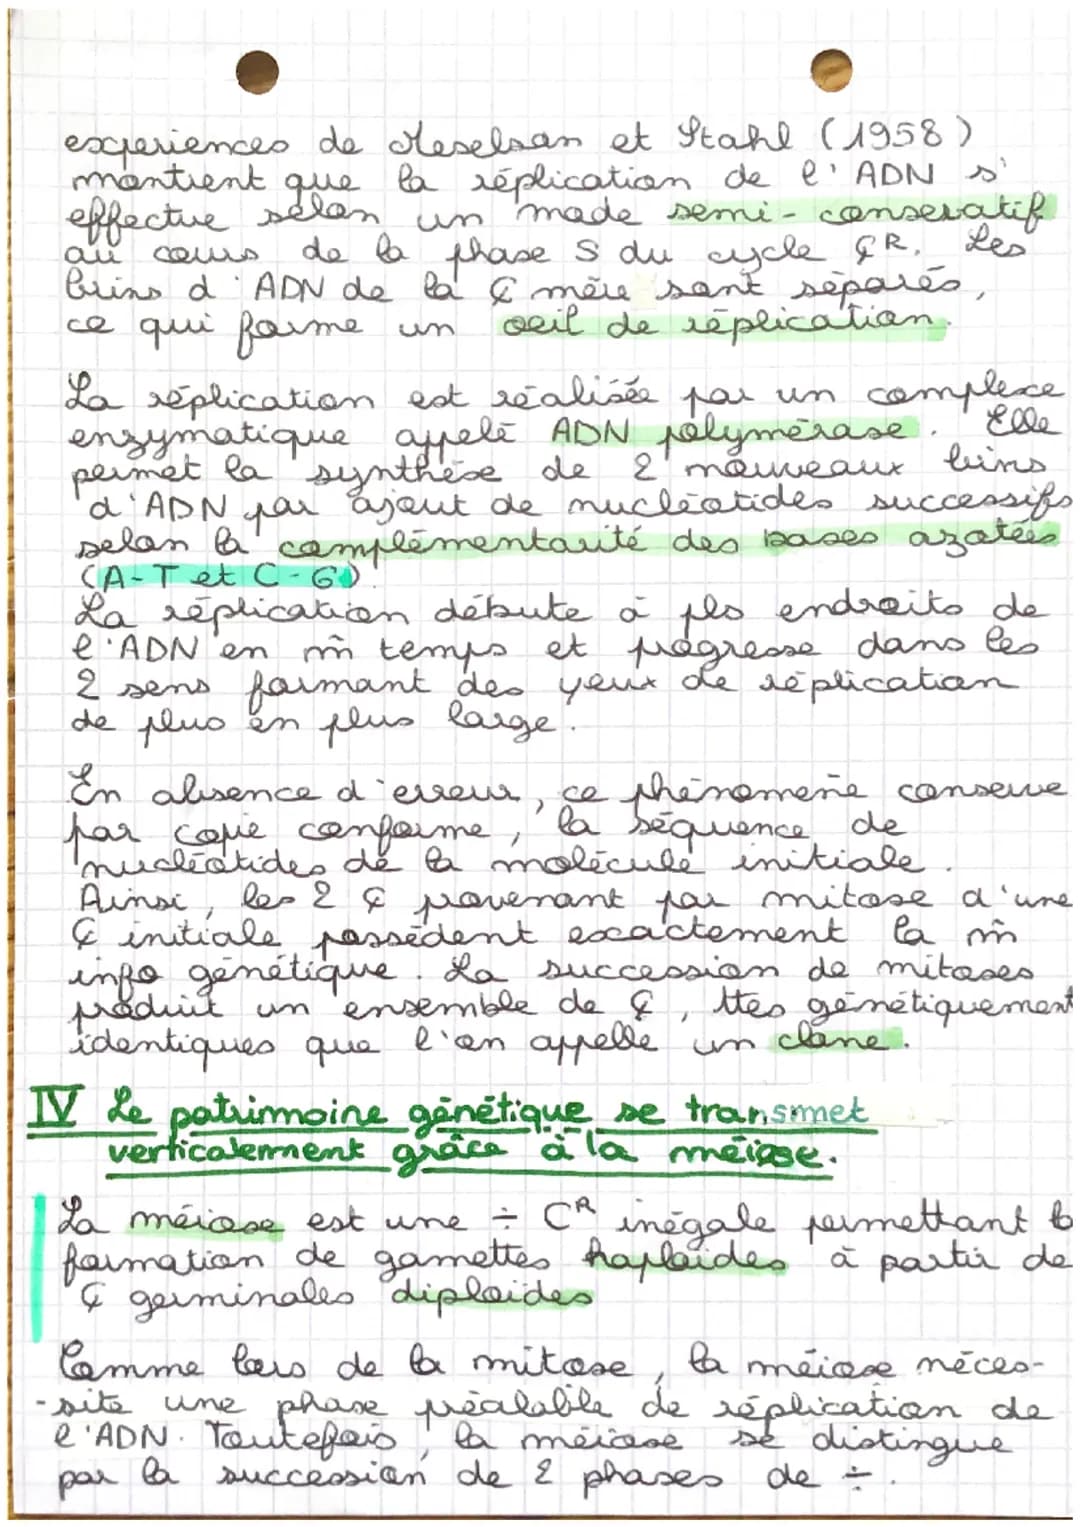 experiences de Meselson et Stahl (1958)
montrent que la réplication de l'ADN s'
effectue selon un mode semi-conservatif
au cours de la phase S du cycle ȻR. Les
brins d'ADN de la Ȼ mère sont séparés,
ce qui forme un oeil de réplication.
La réplication est réalisée par un complexe
enzymatique appelé ADN polymérase. Elle
permet la synthèse de 2 nouveaux brins
d'ADN par ajout de nucléotides successifs
selon la complémentarité des bases azotées
(A-T et C-G)
La réplication débute à pls endroits de
l'ADN en m̂ temps et progresse dans les
2 sens formant des yeux de réplication
de plus en plus large.
En absence d'erreur, ce phénomène conserve
par copie conforme, la séquence de
nucléotides de la molécule initiale.
Ainsi, les 2 Ȼ provenant par mitose d'une
Ȼ initiale possèdent exactement la m̂
info génétique. La succession de mitoses
produit un ensemble de Ȼ, ttes génétiquement
identiques que l'on appelle un clone.
IV Le patrimoine génétique se transmet
verticalement grâce à la méiose.
La méiose est une ÷ CR inégale permettant la
formation de gamettes haploïdes à partir de
Ȼ germinales diploïdes
Comme lors de la mitose, la méiose néces-
-site une phase préalable de réplication de
l'ADN. Toutefois, la méiose se distingue
par la succession de 2 phases de ÷.